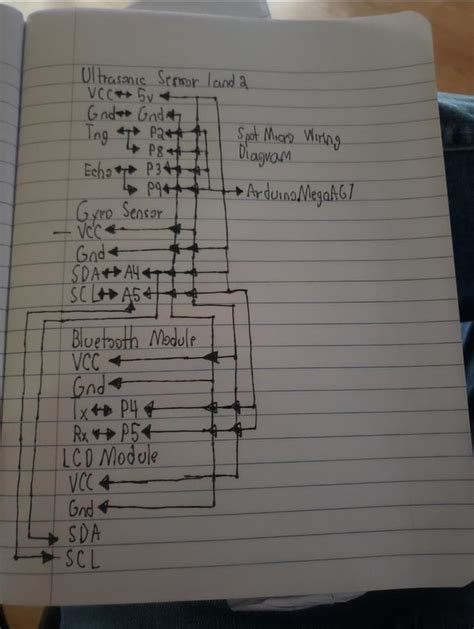 Ultrasonic Sensor 1 and 2
VCC ↔ 5v
Gnd ↔ Gnd
Trig ↔ P2
P8
Echo ↔ P3
P9
Spot Micro Wiring
Diagram
Arduino Mega AG1
Gyro Sensor
VCC
Gnd
SDA ↔ A4
SCL ↔ A5
Bluetooth Module
VCC
Gnd
Tx ↔ P4
Rx ↔ P5
LCD Module
VCC
Gnd
SDA
SCL